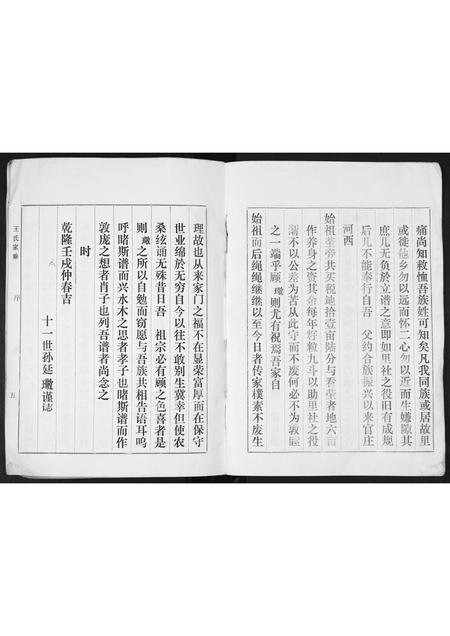 痛尚知救恤吾族姓可知矣凡我同族或居故里
或徙他乡勿以远而怀二心勿以近而生嫌隙其
庶几无负於立谱之意即如里社之役旧有成规
后儿不能奉行自吾 父约合族振兴以来官庄
河西
始祖茔旁共买税地拾壹亩陆分与看茔者地六亩
作养身之资其余每年籽粒九斗以助里社之役
渐不以公差为苦从此守而不废何必不为敦睦
之一端乎顾 璥则尤有祝焉吾家自
始祖而后绳绳继继以至今日者传家朴素不废生
理故也从来家门之福不在显荣富厚而在保守
世业绵於无穷自今以往不敢别生冀幸但使农
桑弦诵无殊昔日吾 祖宗必有顾之色喜者是
则 璥之所以自勉而窃愿与吾族共相告语耳呜
呼睹斯谱而兴水木之思者孝子也睹斯谱而作
敦庞之想者肖子也列吾谱者尚念之
时
乾隆壬戌仲春吉
十一世孙廷 璥谨志
王氏家乘 序 五